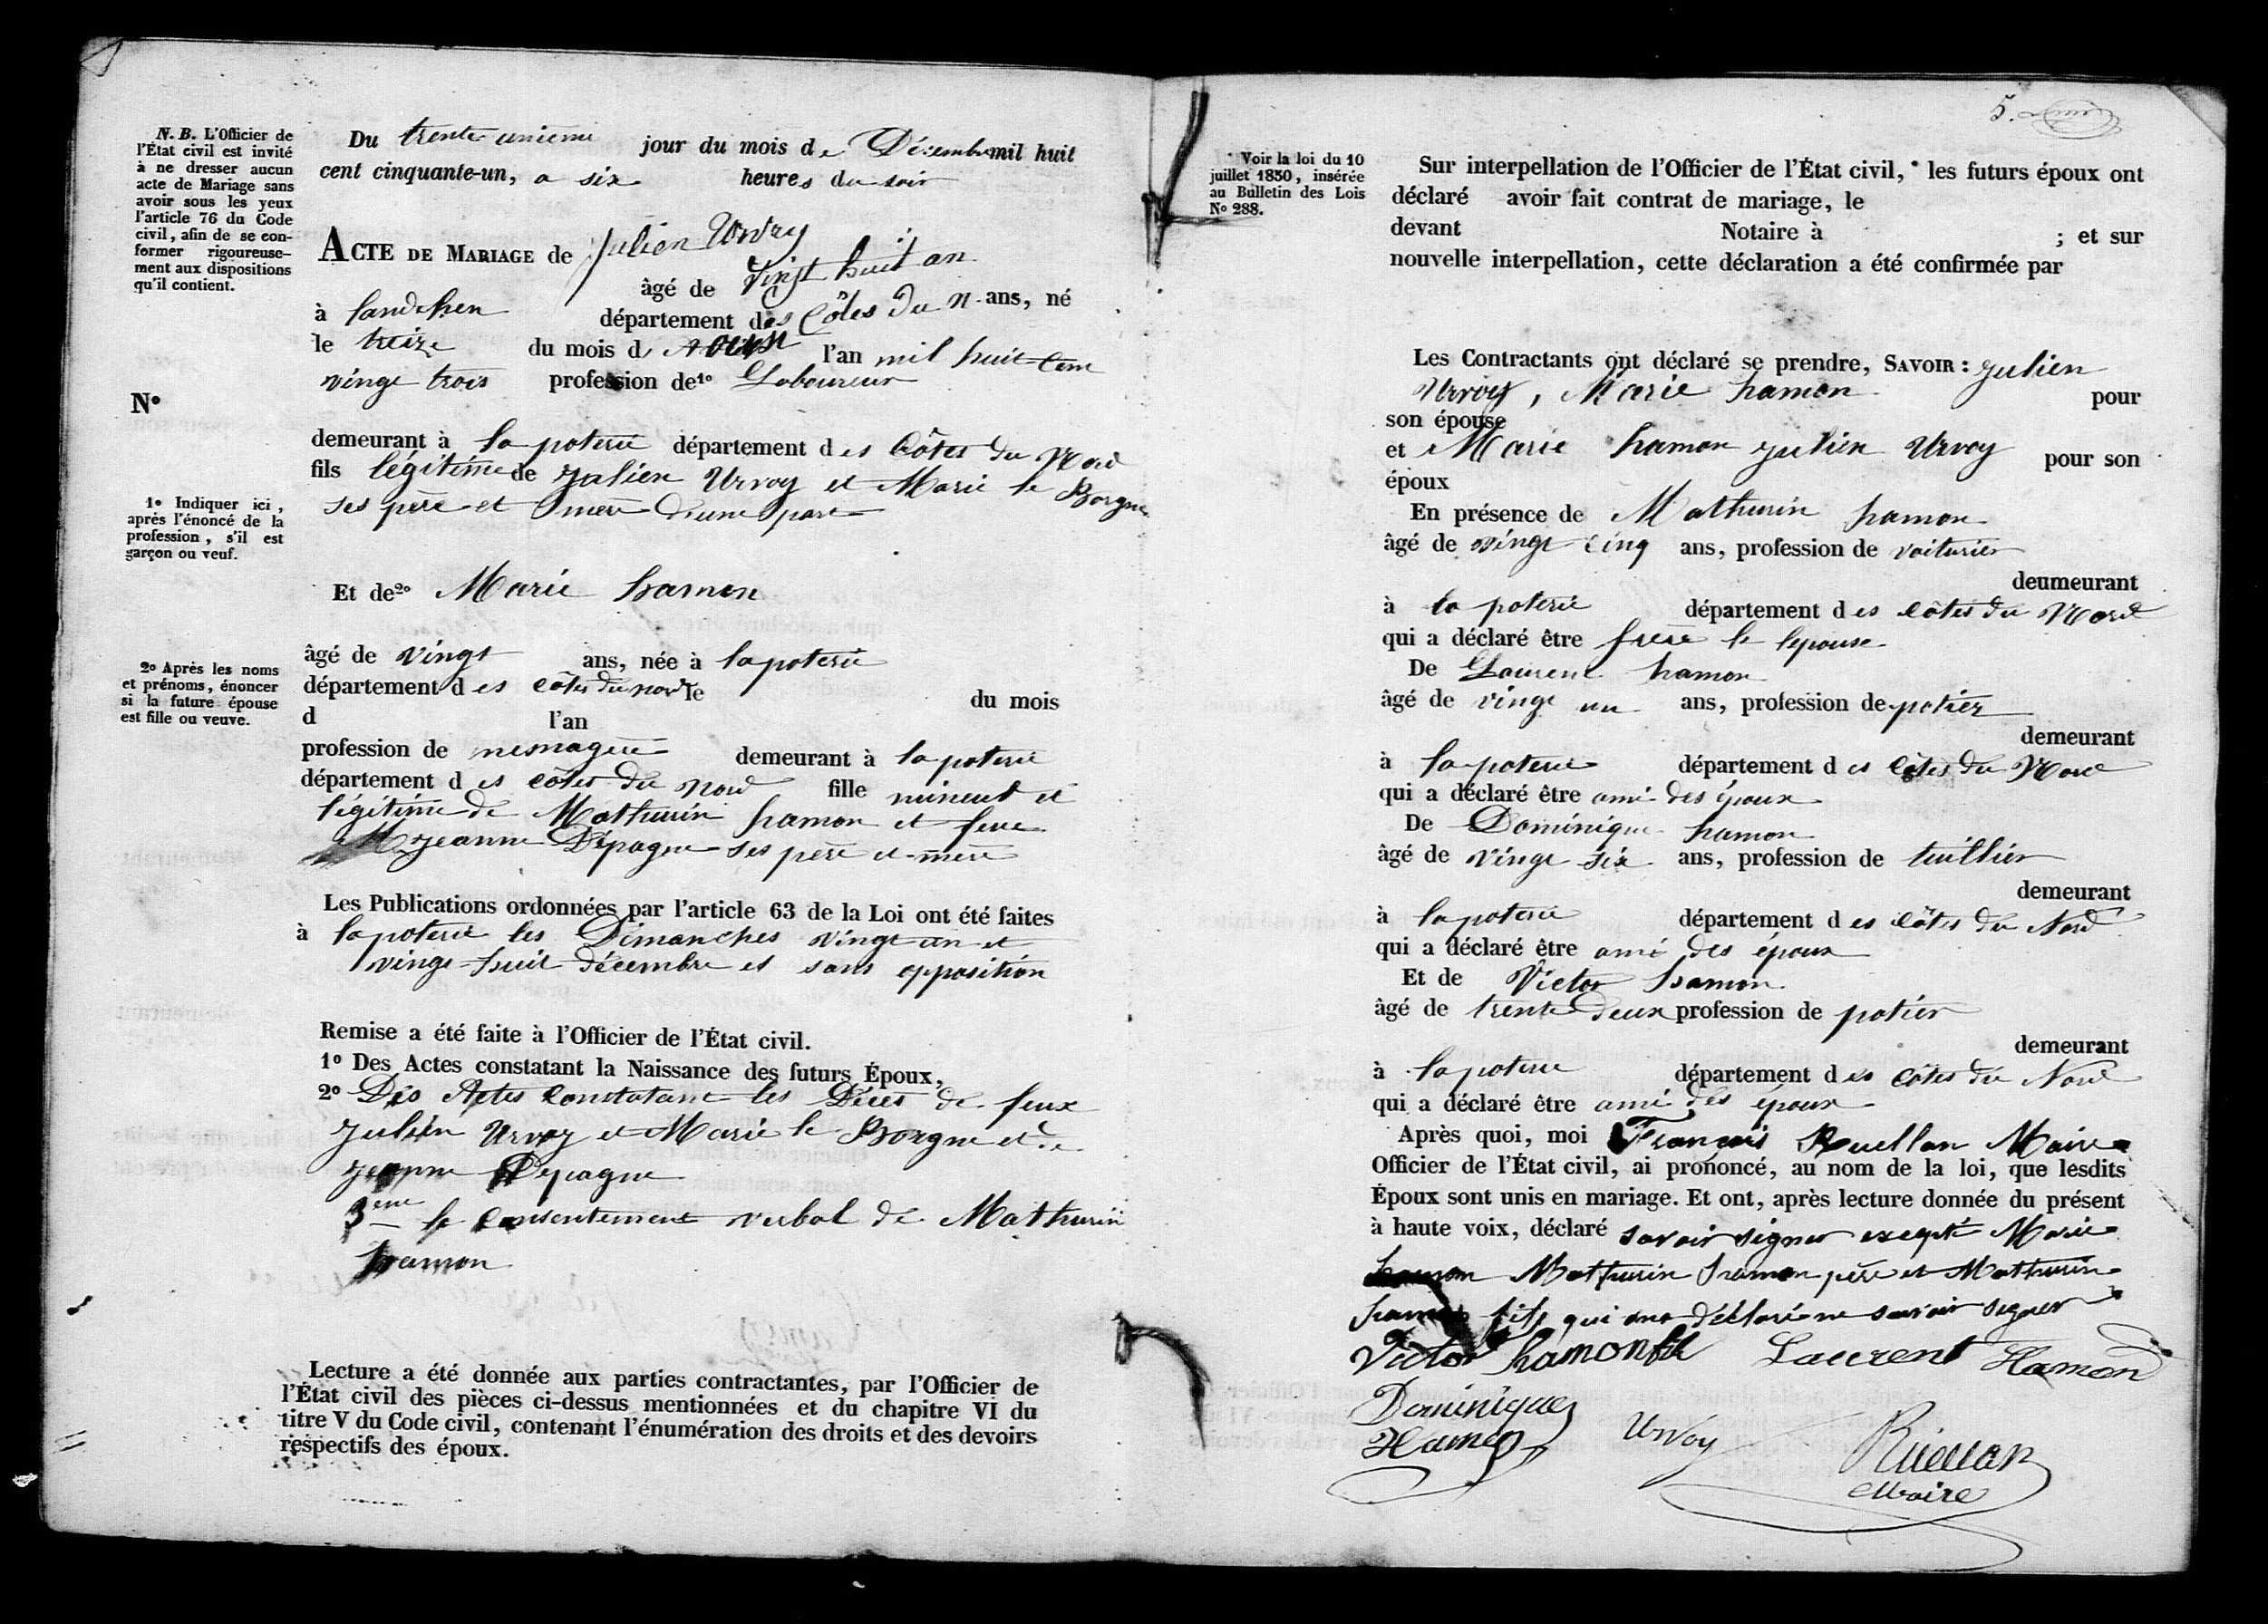 N. B. L'Officier de
l'État civil est invité
à ne dresser aucun
acte de Mariage sans
avoir sous les yeux
l'article 76 du Code
civil, afin de se con-
former rigoureuse-
ment aux dispositions
qu'il contient.
Du trente unieme jour du mois de Décembre mil huit
cent cinquante-un, a six heures du soir
ACTE DE MARIAGE de Julien Urvoy
âgé de vingt huit an
à landehen département des Côtes du N. ans, né
le treize du mois d Aoust l'an mil huit-cent
vingt trois profession de 1º Laboureur
Nº
demeurant à la poterie département des Côtes du Nord
fils légitime de Julien Urvoy et Marie le Borgne
ses père et mère d'une part
1º Indiquer ici,
après l'énoncé de la
profession, s'il est
garçon ou veuf.
Et de 2º Marie hamon
âgé de vingt ans, née à la poterie
département des côtes du nord le du mois
d l'an
2º Après les noms
et prénoms, énoncer
si la future épouse
est fille ou veuve.
profession de mesnagere demeurant à la poterie
département des côtes du nord fille mineure et
légitime de Mathurin hamon et feue
Jeanne Dépagne ses père et mère
Les Publications ordonnées par l'article 63 de la Loi ont été faites
à la poterie les Dimanches vingt-un et
vingt-huit décembre et sans opposition
Remise a été faite à l'Officier de l'État civil.
1º Des Actes constatant la Naissance des futurs Époux,
2º Des Actes Constatant les Décès de feux
Julien Urvoy et Marie le Borgne et de
Jeanne Dépagne
3eme le consentement verbal de Mathurin
hamon
Lecture a été donnée aux parties contractantes, par l'Officier de
l'État civil des pièces ci-dessus mentionnées et du chapitre VI du
titre V du Code civil, contenant l'énumération des droits et des devoirs
respectifs des époux.
5.
* Voir la loi du 10
juillet 1850, insérée
au Bulletin des Lois
Nº 288.
Sur interpellation de l'Officier de l'État civil, * les futurs époux ont
déclaré avoir fait contrat de mariage, le
devant Notaire à ; et sur
nouvelle interpellation, cette déclaration a été confirmée par
Les Contractants ont déclaré se prendre, SAVOIR : Julien
Urvoy, Marie hamon pour
son épouse
et Marie hamon Julien Urvoy pour son
époux
En présence de Mathurin hamon
âgé de vingt cinq ans, profession de voiturier
deumeurant
à la poterie département des côtes du Nord
qui a déclaré être frere de lepouse
De Laurent hamon
âgé de vingt un ans, profession de potier
demeurant
à la poterie département des Côtes du Nord
qui a déclaré être ami des époux
De Dominique hamon
âgé de vingt six ans, profession de tuillier
demeurant
à la poterie département des côtes du Nord
qui a déclaré être ami des époux
Et de Victor hamon
âgé de trente deux profession de potier
demeurant
à la poterie département des côtes du Nord
qui a déclaré être ami des époux
Après quoi, moi François Ruellan Maire
Officier de l'État civil, ai prononcé, au nom de la loi, que lesdits
Époux sont unis en mariage. Et ont, après lecture donnée du présent
à haute voix, déclaré savoir signer excepté Marie
hamon Mathurin hamon père et Mathurin
hamon fils qui ont déclaré ne savoir signer
Victor hamon fils Laurent Hamon
Dominique
Hamon Urvoy Ruellan
Maire